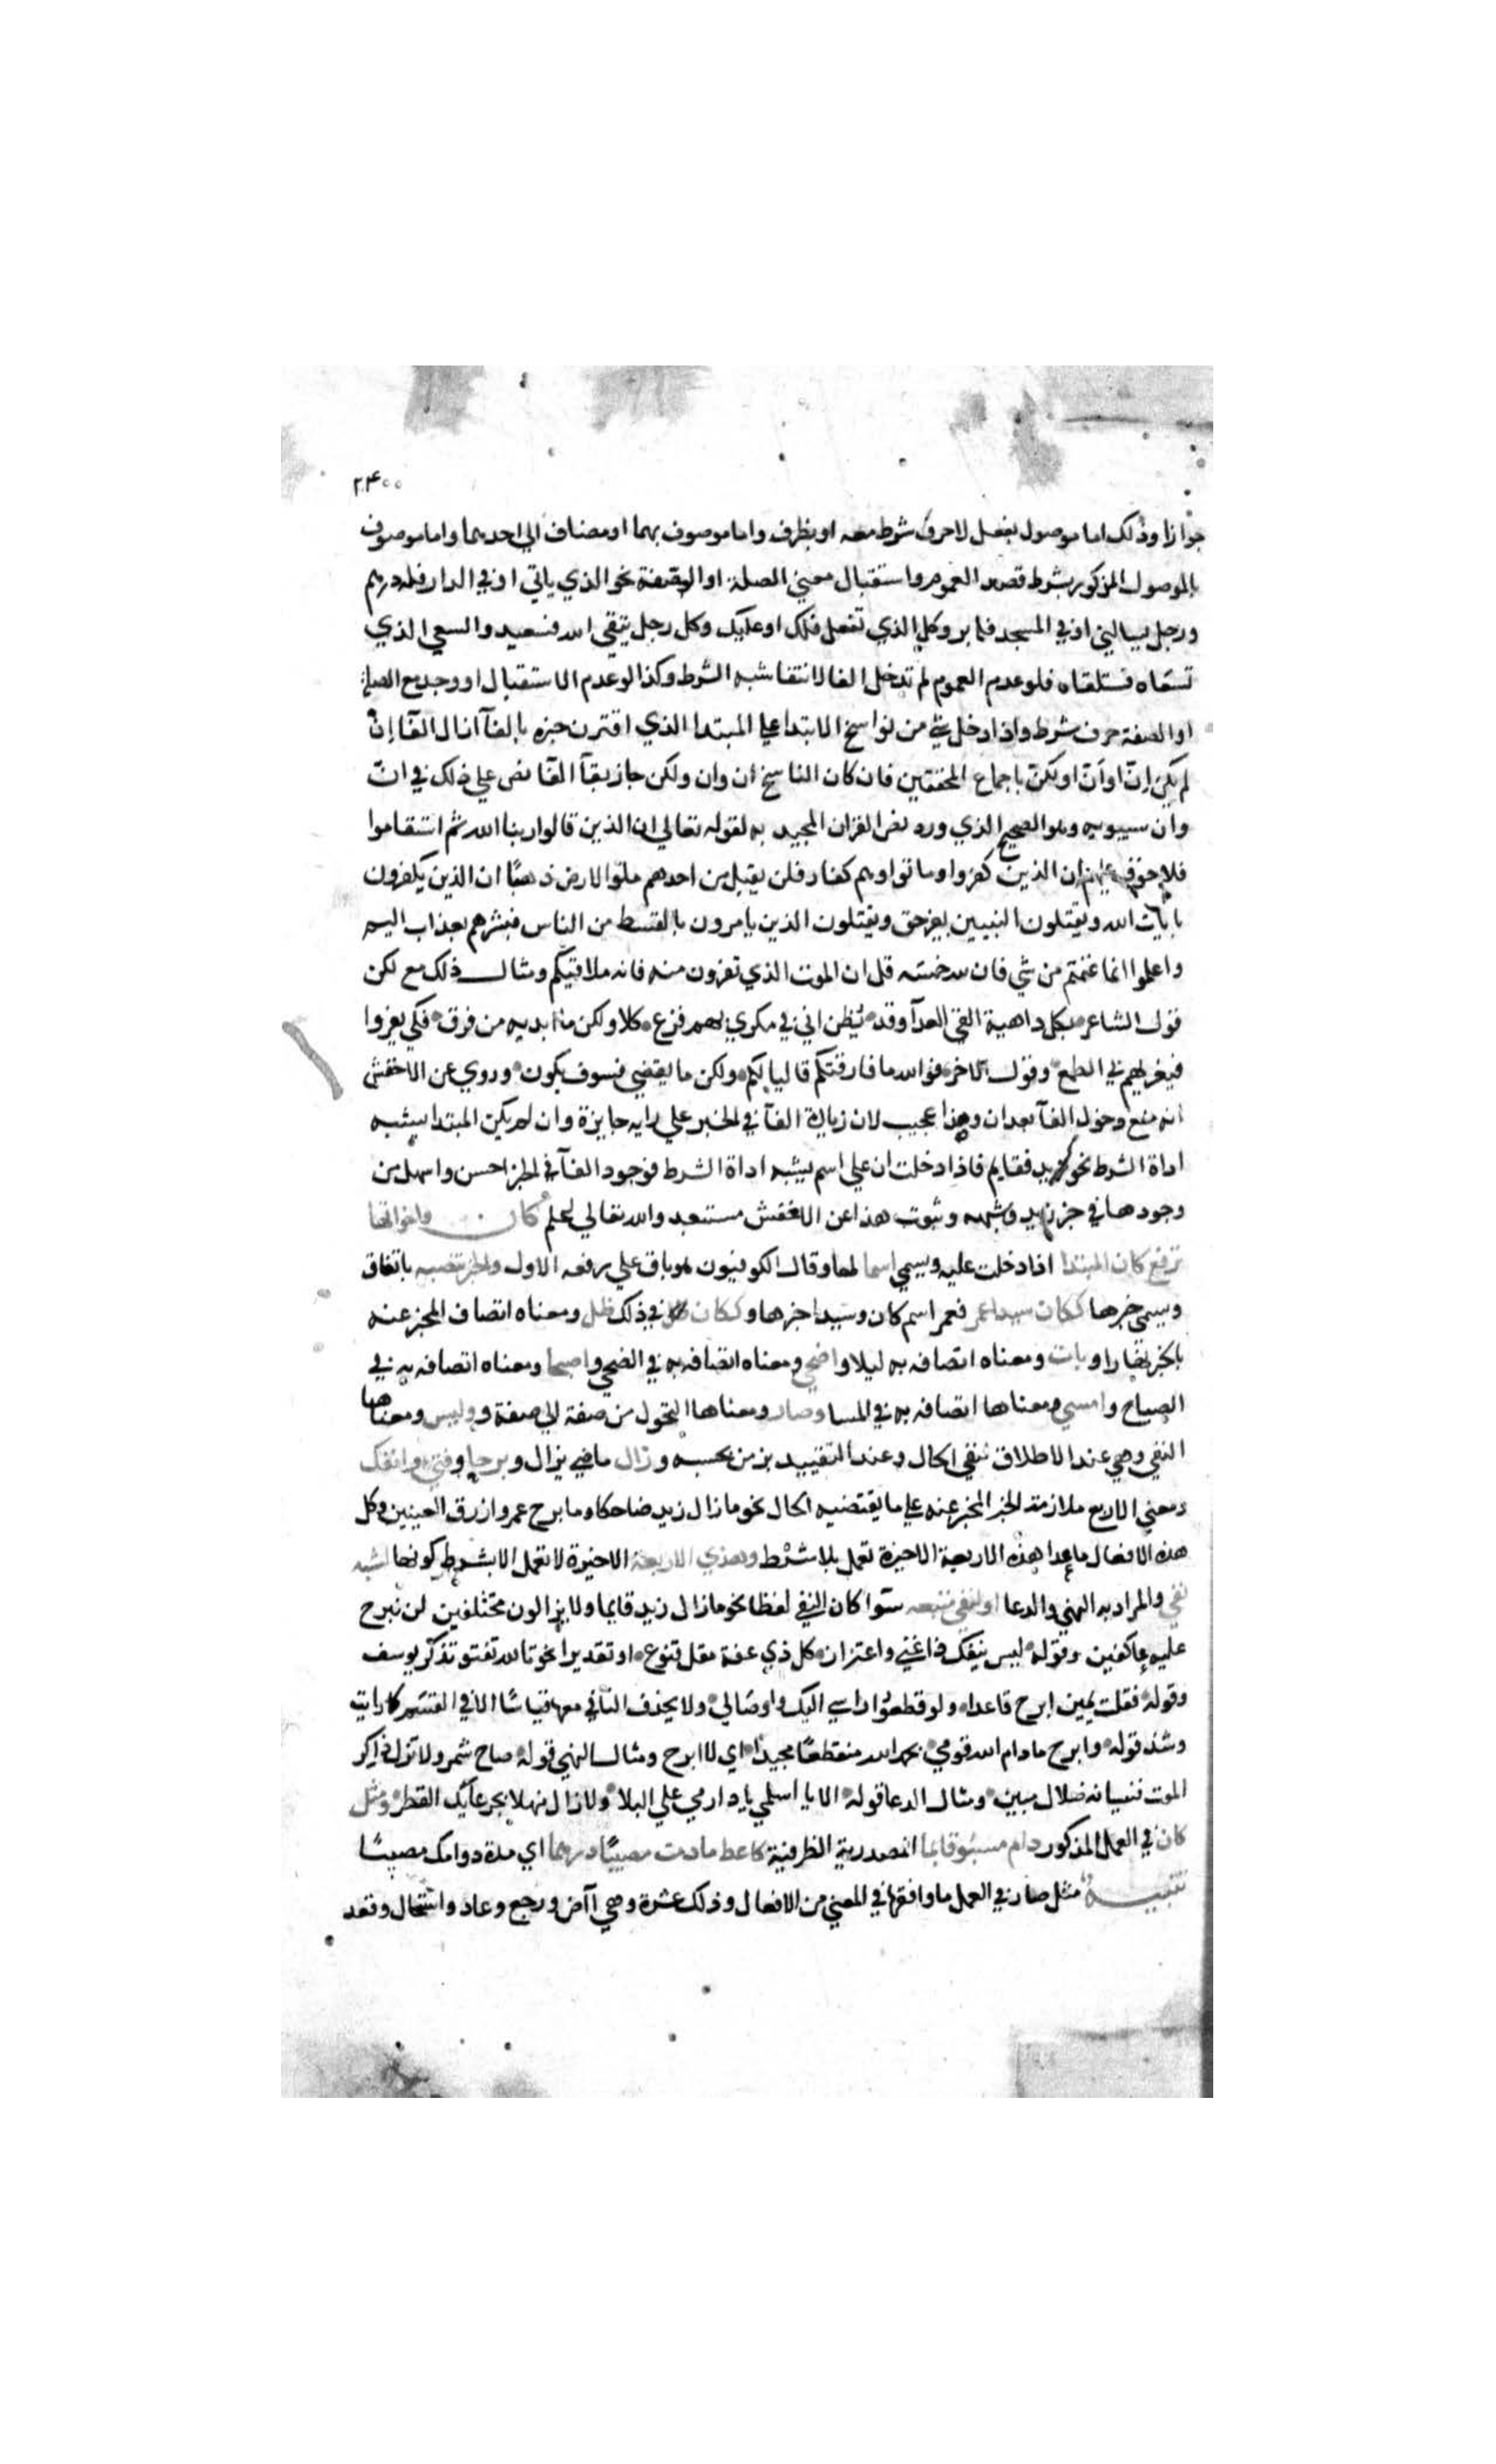 ٢٤٠٠
جوازا وذلك اما موصول بفعل لاحرف شرط معه او بظرف واما موصوف بهما او مضاف الي احدهما واما موصوف
بالموصول المذكور بشرط قصد العموم واستقبال معني الصلة او الصفة نحو الذي ياتي او في الدار فله درهم
ورجل يسالني او في المسجد فله بر وكل الذي تفعل فلك او عليك وكل رجل يتقي الله فسعيد والسعي الذي
تسعاه فستلقاه فلو عدم العموم لم تدخل الفا لانتفا شبه الشرط وكذا لو عدم الاستقبال او وجد مع الصلة
او الصفة حرف شرط واذا دخل شي من نواسخ الابتدا علي المبتدا الذي اقترن خبره بالفآ ازال الفآ إن
لم يكن إنّ او أنّ او لكنّ باجماع المحققين فان كان الناسخ ان وان ولكن جاز بقآ الفآ نص علي ذلك في انّ
وان سيبويه وهو الصحيح الذي ورد نص القران المجيد به لقوله تعالي ان الذين قالوا ربنا الله ثم استقاموا
فلا خوف عليهم ان الذين كفروا وماتوا وهم كفار فلن يقبل من احدهم ملؤ الارض ذهبًا ان الذين يكفرون
بايات الله ويقتلون النبيين بغير حق ويقتلون الذين يامرون بالقسط من الناس فبشرهم بعذاب اليم
واعلموا انما غنمتم من شي فان لله خمسه قل ان الموت الذي تفرون منه فانه ملاقيكم ومثال ذلك مع لكن
قول الشاعر بكل داهية القي العدآ وقد يُظن اني في مكري بهم فزع كلا ولكن ما ابديه من فرق فكي يغروا
فيغريهم في الطمع وقول الاخر فوالله ما فارقتكم قاليا لكم ولكن ما يقضي فسوف يكون وروي عن الاخفش
انه منع دخول الفآ بعد ان وهذا عجيب لان زيادة الفآ في الخبر علي رايه جايزة وان لم يكن المبتدا يشبه
اداة الشرط نحو زيد فقايم فاذا دخلت ان علي اسم يشبه اداة الشرط فوجود الفآ في الخبر احسن واسهل من
وجودها في خبر زيد وشبهه وثبوت هذا عن الاخفش مستبعد والله تعالي اعلم كان واخواتها
ترفع كان المبتدا اذا دخلت عليه ويسمي اسما لها وقال الكوفيون هو باق علي رفعه الاول والخبر تنصبه باتفاق
ويسمي خبرها ككان سيدا عمر فعمر اسم كان وسيدا خبرها وككان في ذلك ظل ومعناه اتصاف المخبر عنه
بالخبر نهارا وبات ومعناه اتصافه به ليلا واضحي ومعناه اتصافه به في الضحي واصبحا ومعناه اتصافه به في
الصباح وامسي ومعناها اتصافه به في المسا وصار ومعناها التحول من صفة الي صفة وليس ومعناها
النفي وهي عند الاطلاق لنفي الحال وعند التقييد بزمن بحسبه وزال ماضي يزال وبرحا وفتئ وانفك
ومعني الاربع ملازمة الخبر المخبر عنه علي ما يقتضيه الحال نحو ما زال زيد ضاحكا وما برح عمرو ازرق العينين وكل
هذه الافعال ما عدا هذه الاربعة الاخيرة تعمل بلا شرط وهذي الاربعة الاخيرة لا تعمل الا بشرط كونها لشبه
نفي والمراد به النهي والدعا او لنفي متبعه سوا كان النفي لفظا نحو ما زال زيد قايما ولا يزالون مختلفين لن نبرح
عليه عاكفين وقوله ليس ينفك ذا غني واعتزاز كل ذي عفة مقل قنوع او تقديرا نحو تالله تفتو تذكر يوسف
وقوله فقلت يمين ابرح قاعدا ولو قطعوا راسي اليك واوصالي ولا يحذف النافي معها قياسًا الا في القسم كما رايت
وشذ قوله وابرح ما دام الله قومي بحمد الله منتطقًا مجيدا اي لا ابرح ومثال النهي قوله صاح شمر ولا تزل ذاكر
الموت فنسيانه ضلال مبين ومثال الدعا قوله الا يا اسلمي يا دار مي علي البلا ولا زال منهلا بجرعآيك القطر ومثل
كان في العمل المذكور دام مسبوقا بما المصدرية الظرفية كاعط ما دمت مصيبًا درهما اي مدة دوامك مصيبًا
تنبيه مثل صار في العمل ما وافقها في المعني من الافعال وذلك عشرة وهي آض ورجع وعاد واستحال وقعد